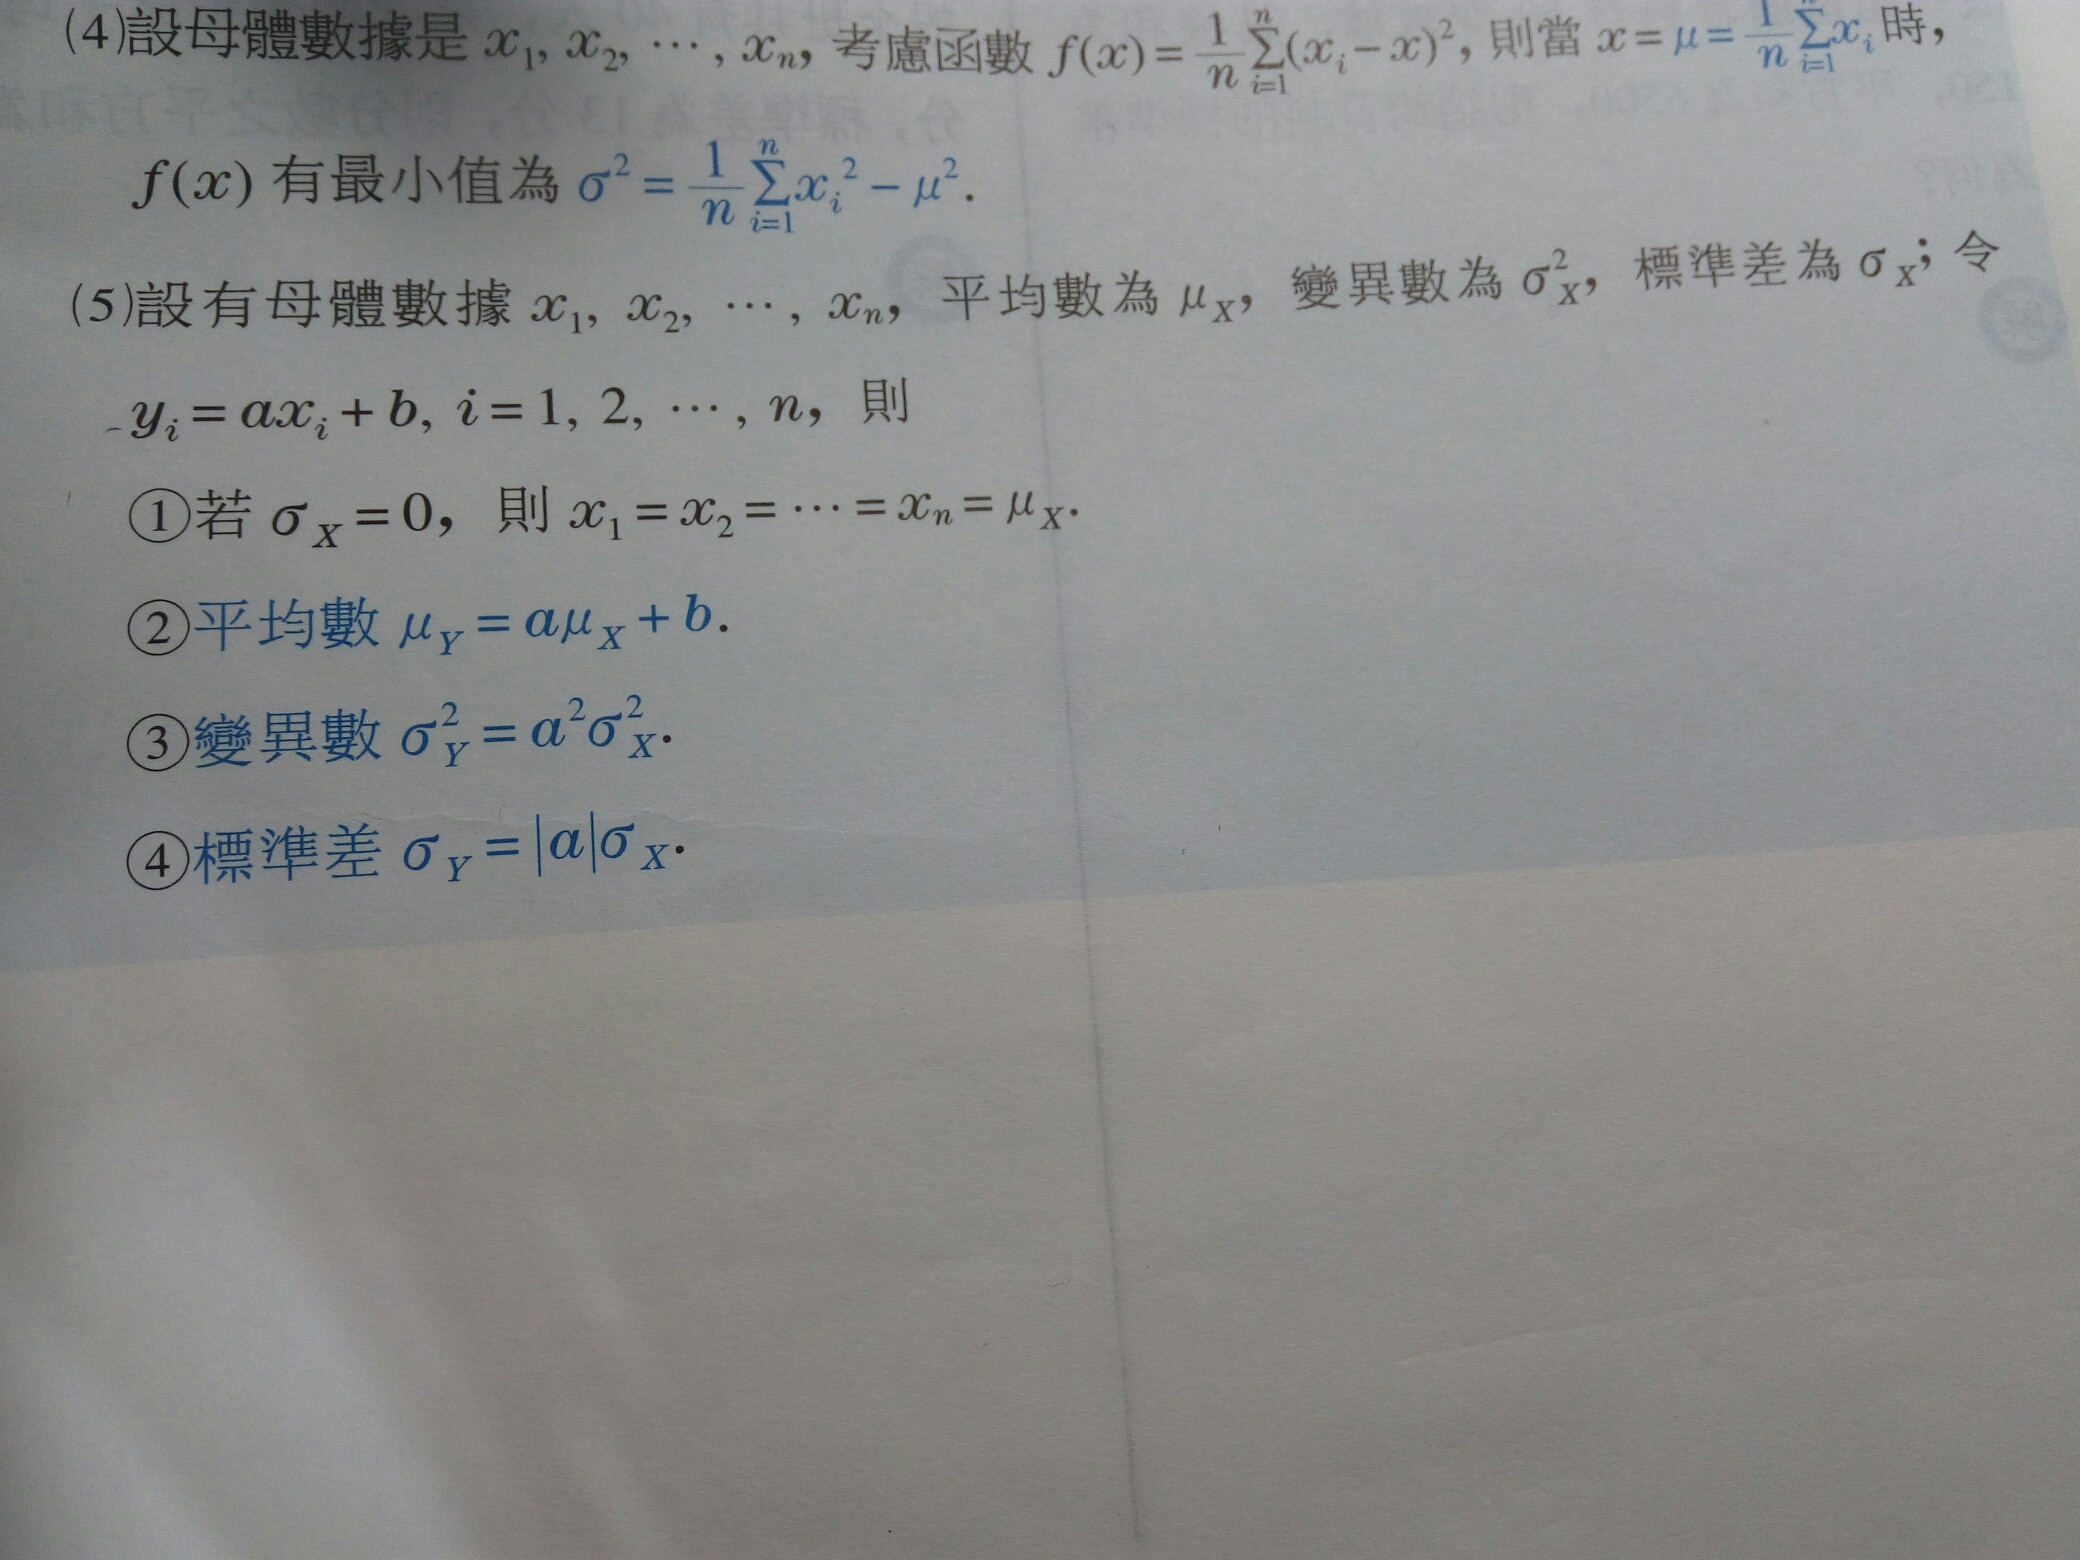 (4)設母體數據是 x₁, x₂, ⋯, xₙ, 考慮函數 f(x) = 1/n Σᵢ₌₁ⁿ(xᵢ − x)², 則當 x = μ = 1/n Σᵢ₌₁ⁿ xᵢ 時,
f(x) 有最小值為 σ² = 1/n Σᵢ₌₁ⁿ xᵢ² − μ².
(5)設有母體數據 x₁, x₂, ⋯, xₙ, 平均數為 μ_X, 變異數為 σ²_X, 標準差為 σ_X; 令
yᵢ = axᵢ + b, i = 1, 2, ⋯, n, 則
①若 σ_X = 0, 則 x₁ = x₂ = ⋯ = xₙ = μ_X.
②平均數 μ_Y = aμ_X + b.
③變異數 σ²_Y = a²σ²_X.
④標準差 σ_Y = |a|σ_X.